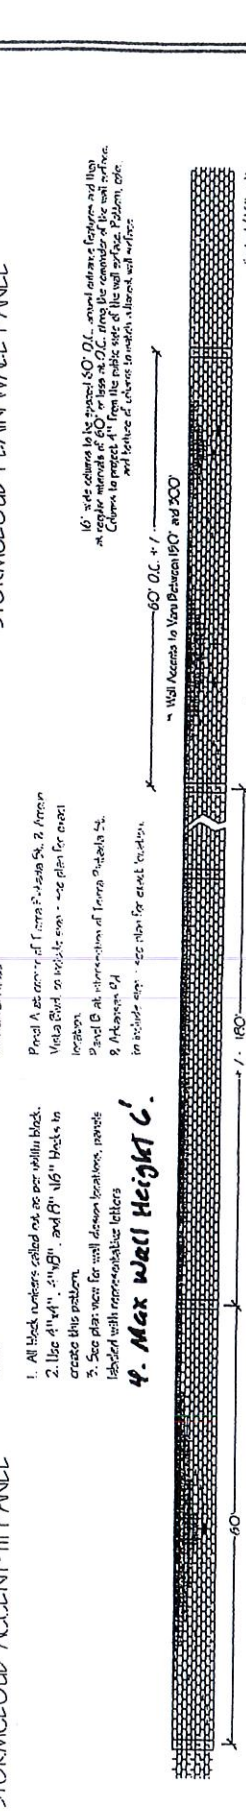 STORMCLOUD ACCENT
1. All block numbers called out as per utility block.
2. Use 4"x4", 4"x8", and 8"x16" blocks to
create this pattern
3. See plan view for wall design locations, panels
labeled with representative letters
4. Max Wall Height 6'.
Panel A at corner of Tierra Pintada St. & Arroyo
Vista Blvd. to include sign - see plan for exact
location
Panel B at intersection of Tierra Pintada St.
& Arkansas Rd
to include sign - see plan for exact location.
16" wide columns to be spaced 60' O.C. around entrance features and then
at regular intervals of 60' or less at O.C. along the remainder of the wall surface.
Columns to project 4" from the public side of the wall surface. Pattern, color,
and texture of columns to match adjacent wall surface
60' O.C. +/-
Wall Accents to Vary Between 150' and 300'
60'
+/- 180'